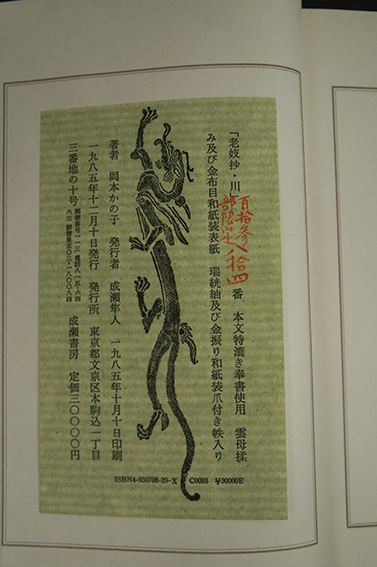 「老妓抄・川」百拾参部限定八拾四番 本文特漉き奉書使用 雲母揉
み及び金布目和紙装表紙 瑞絖紬及び金振り和紙装爪付き帙入り
著者 岡本かの子 発行者 成瀬隼人 一九八五年十月十日印刷
一九八五年十二月十日発行 発行所 東京都文京区本駒込一丁目
三番地の十号 成瀬書房 定価三〇〇〇〇円
ISBN4-930708-29-X C0093 ¥30000E